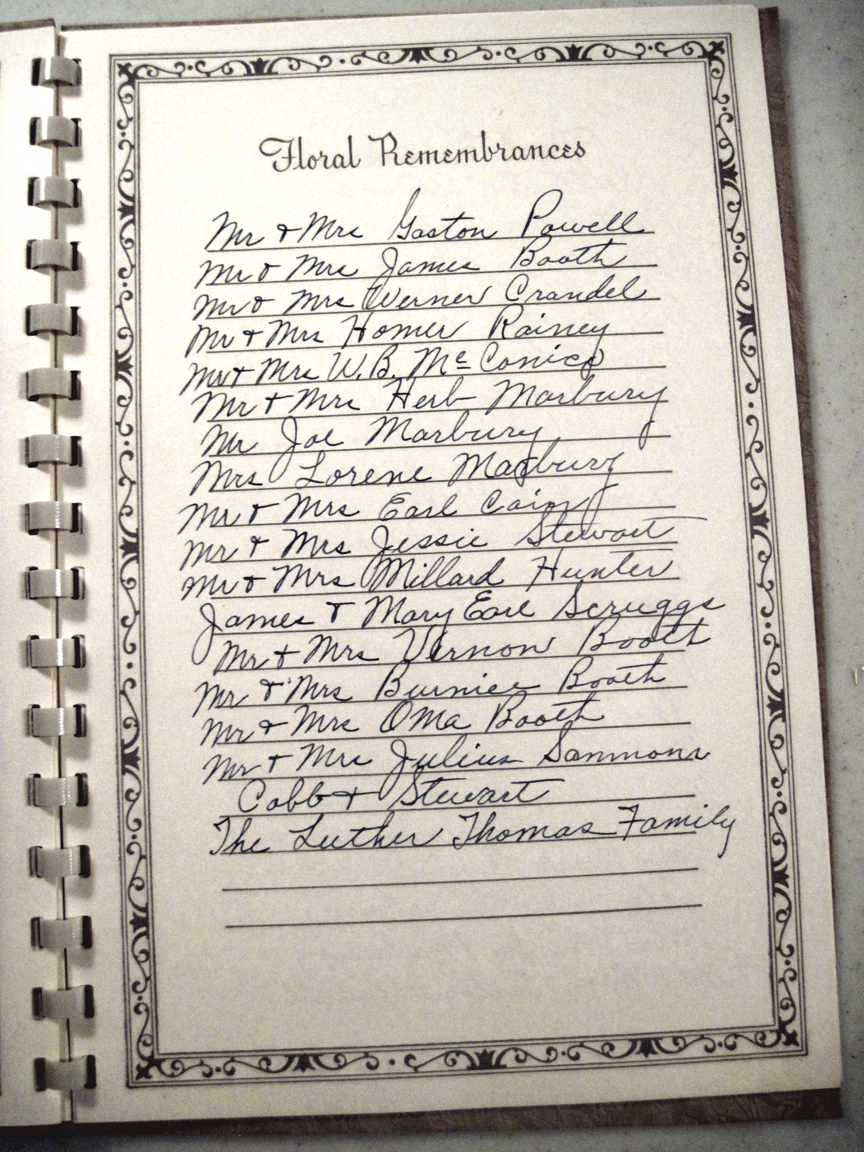 Floral Remembrances
Mr & Mrs Gaston Powell
Mr & Mrs James Booth
Mr & Mrs Werner Crandel
Mr & Mrs Homer Rainey
Mr & Mrs W.B. Mc Conico
Mr & Mrs Herb Marbury
Mr Joe Marbury
Mrs Lorene Marbury
Mr & Mrs Earl Cain
Mr & Mrs Jessie Stewart
Mr & Mrs Millard Hunter
James & Mary Earl Scruggs
Mr & Mrs Vernon Booth
Mr & Mrs Burnice Booth
Mr & Mrs Oma Booth
Mr & Mrs Julius Sammons
Cobb & Stewart
The Luther Thomas Family